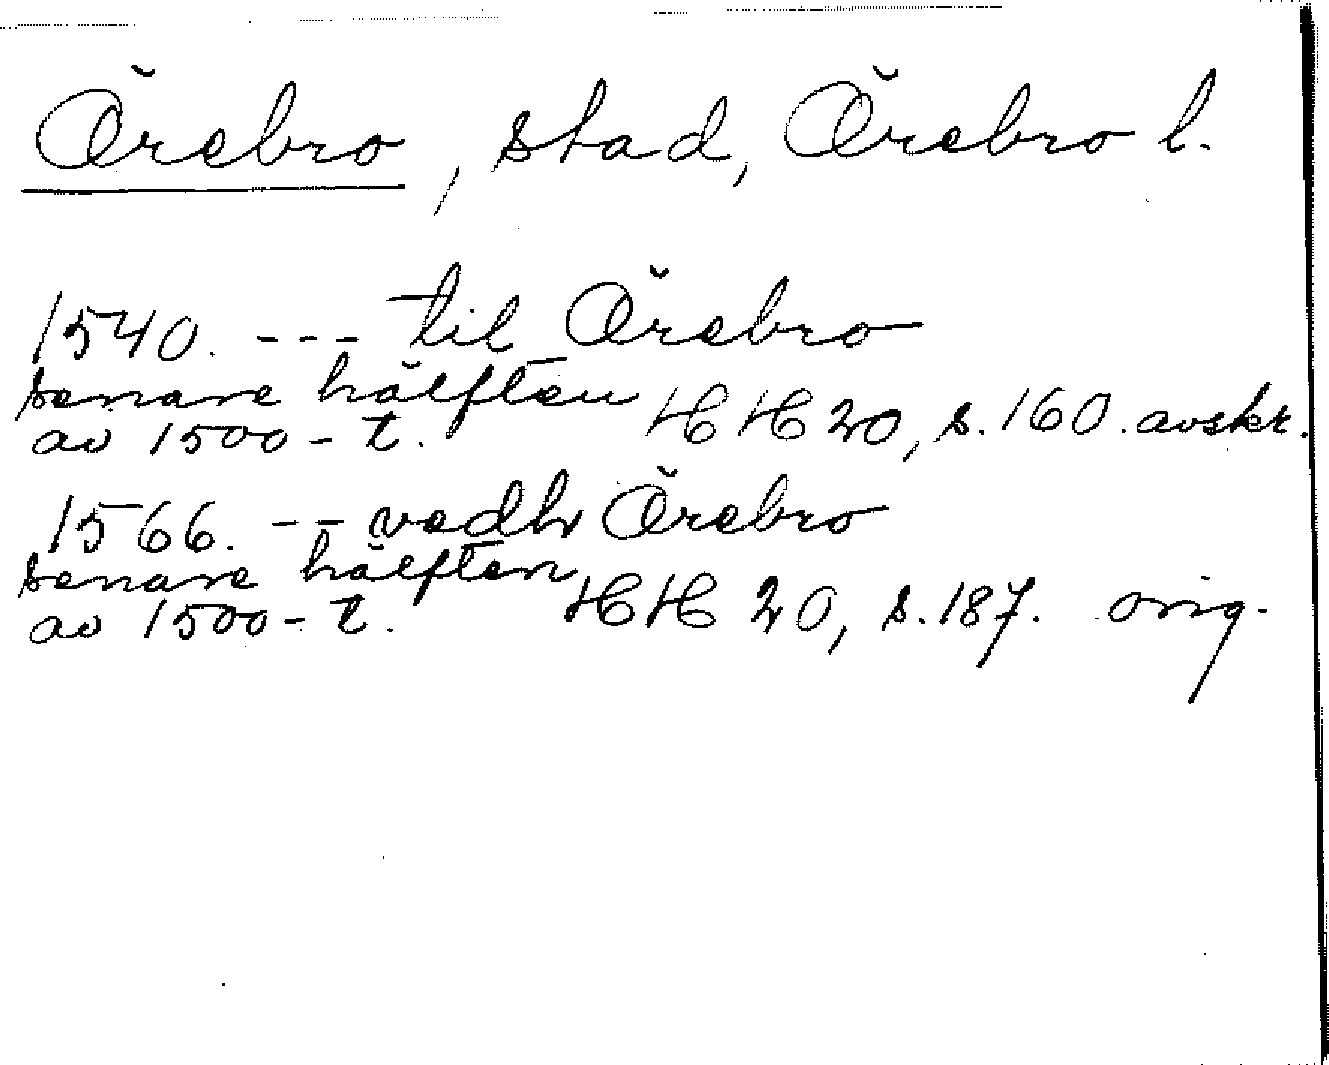 Örebro, stad, Örebro l.
1540. --- til Örebro
senare hälften
av 1500-t. HH 20, s. 160. avskr.
1566. -- vedh Örebro
senare hälften
av 1500-t. HH 20, s. 187. orig.